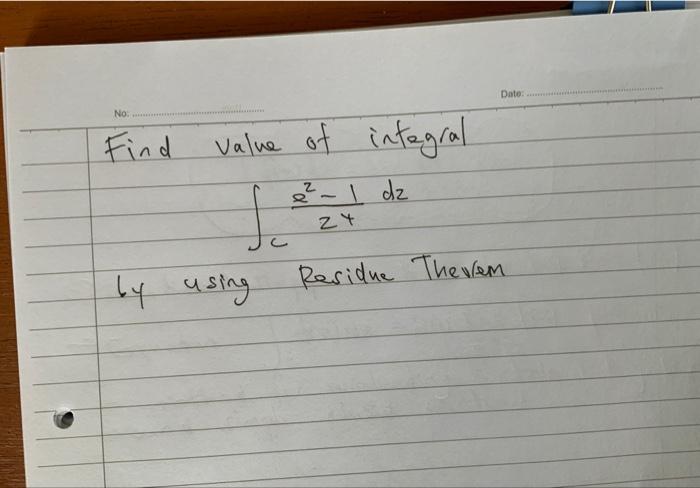 Date:
No:
Find value of integral
∫_C (e^z - 1)/z^4 dz
by using Residue Theorem